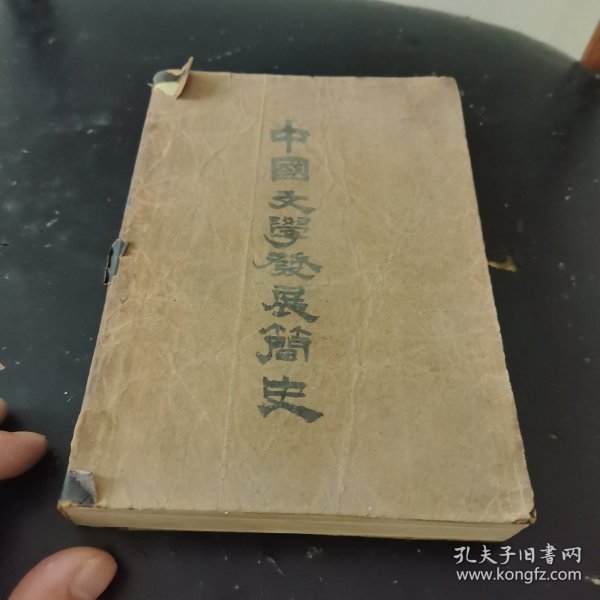 中國文學發展簡史
孔夫子旧書网
www.kongfz.com